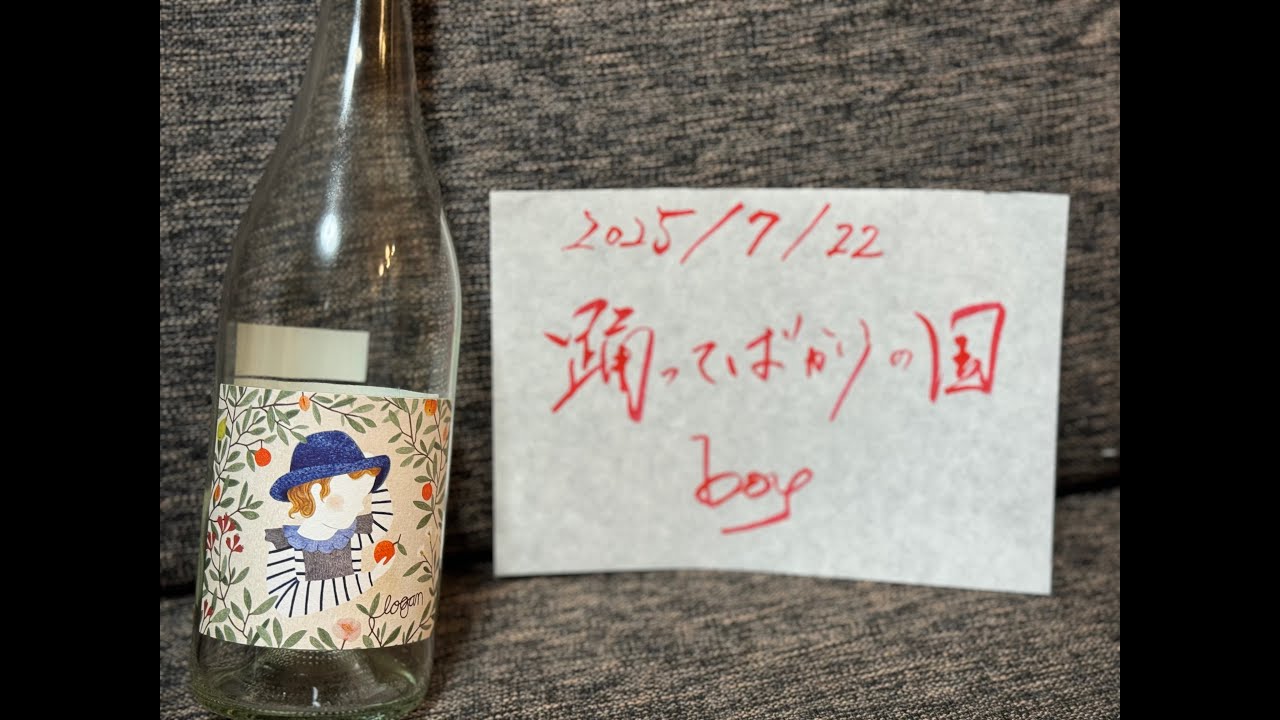 2025/7/22
踊ってばかりの国
boy
logan